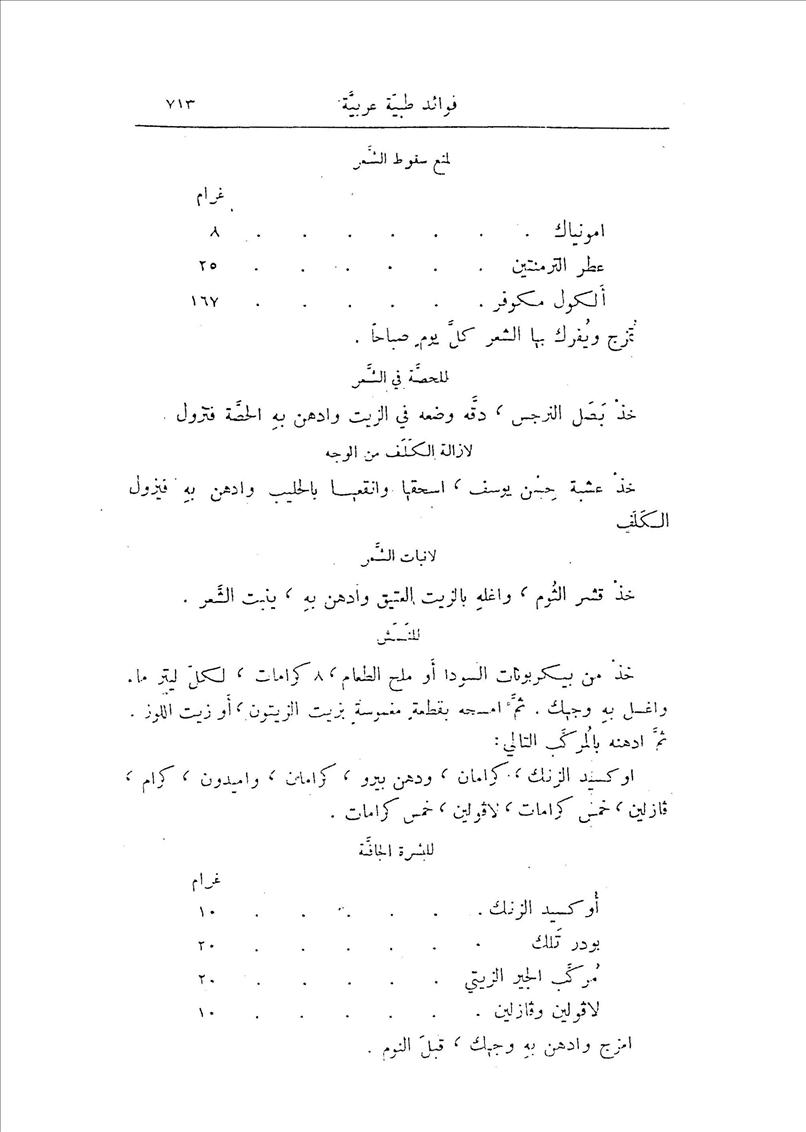 فوائد طبيَّة عربيَّة ٧١٣
لمنع سقوط الشَّعر
غرام
امونياك . . . . . . . ٨
عطر الترمنتين . . . . . . ٢٥
أَلكول مكوفر . . . . . . ١٦٧
تُمزج ويُفرك بها الشعر كلَّ يومٍ صباحاً .
للحصَّة في الشَّعر
خذْ بَصَل النرجس ، دقَّه وضعه في الزيت وادهن بهِ الحصَّة فتزول .
لازالة الكَلَف من الوجه
خذْ عشبة حِسْن يوسف ، اسحقها وانقعها بالحليب وادهن بهِ فيزول
الكَلَف
لانبات الشَّعر
خذْ قشر الثُوم ، واغلهِ بالزيت العتيق وادهن بهِ ، ينبت الشَّعر .
للنَّمَش
خذْ من بيكربونات السودا أَو ملح الطعام ، ٨ كرامات ، لكلّ ليتر ما.
واغسل بهِ وجهك . ثمَّ امسحه بقطعةٍ مغموسةٍ بزيت الزيتون ، أَو زيت اللوز .
ثمَّ ادهنه بالمُركَّب التالي :
اوكسيد الزنك ، كرامان ، ودهن بيرو ، كرامان ، واميدون ، كرام ،
ڤازلين ، خمس كرامات ، لانولين ، خمس كرامات .
للبشرة الجافَّة
غرام
أُوكسيد الزنك . . . . . . ١٠
بودر تَلك . . . . . . ٢٠
مُركَّب الجير الزيتي . . . . . ٢٠
لانولين وڤازلين . . . . . . ١٠
امزج وادهن بهِ وجهك ، قبلَ النوم .